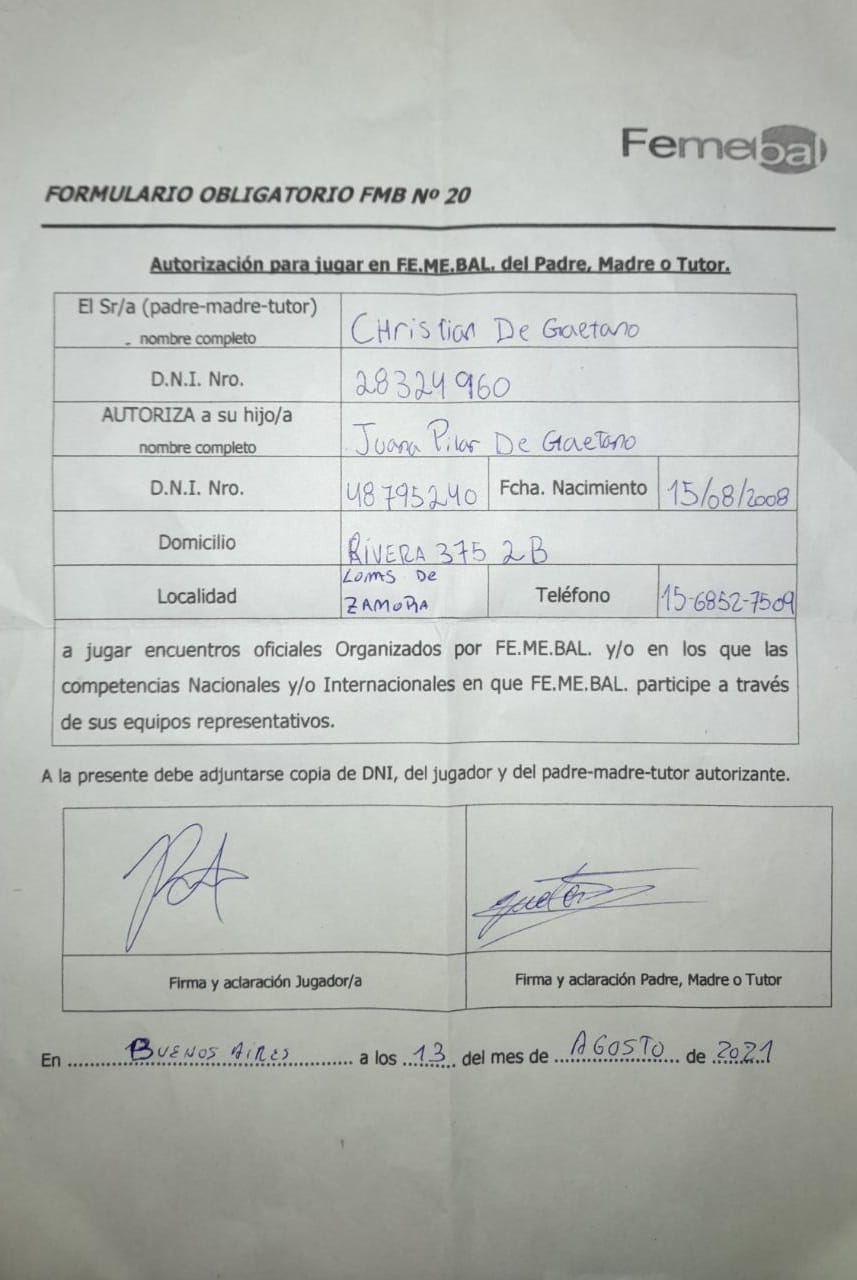 Femebal
FORMULARIO OBLIGATORIO FMB Nº 20
Autorización para jugar en FE.ME.BAL. del Padre, Madre o Tutor.
El Sr/a (padre-madre-tutor)
- nombre completo
CHristian De Gaetano
D.N.I. Nro.
28324960
AUTORIZA a su hijo/a
nombre completo
Juana Pilar De Gaetano
D.N.I. Nro.
48795240
Fcha. Nacimiento
15/08/2008
Domicilio
RIVERA 375 2B
Localidad
LOMAS De
ZAMORA
Teléfono
15-6852-7509
a jugar encuentros oficiales Organizados por FE.ME.BAL. y/o en los que las
competencias Nacionales y/o Internacionales en que FE.ME.BAL. participe a través
de sus equipos representativos.
A la presente debe adjuntarse copia de DNI, del jugador y del padre-madre-tutor autorizante.
Firma y aclaración Jugador/a
Firma y aclaración Padre, Madre o Tutor
En BUENOS AIRES a los 13 del mes de AGOSTO de 2021